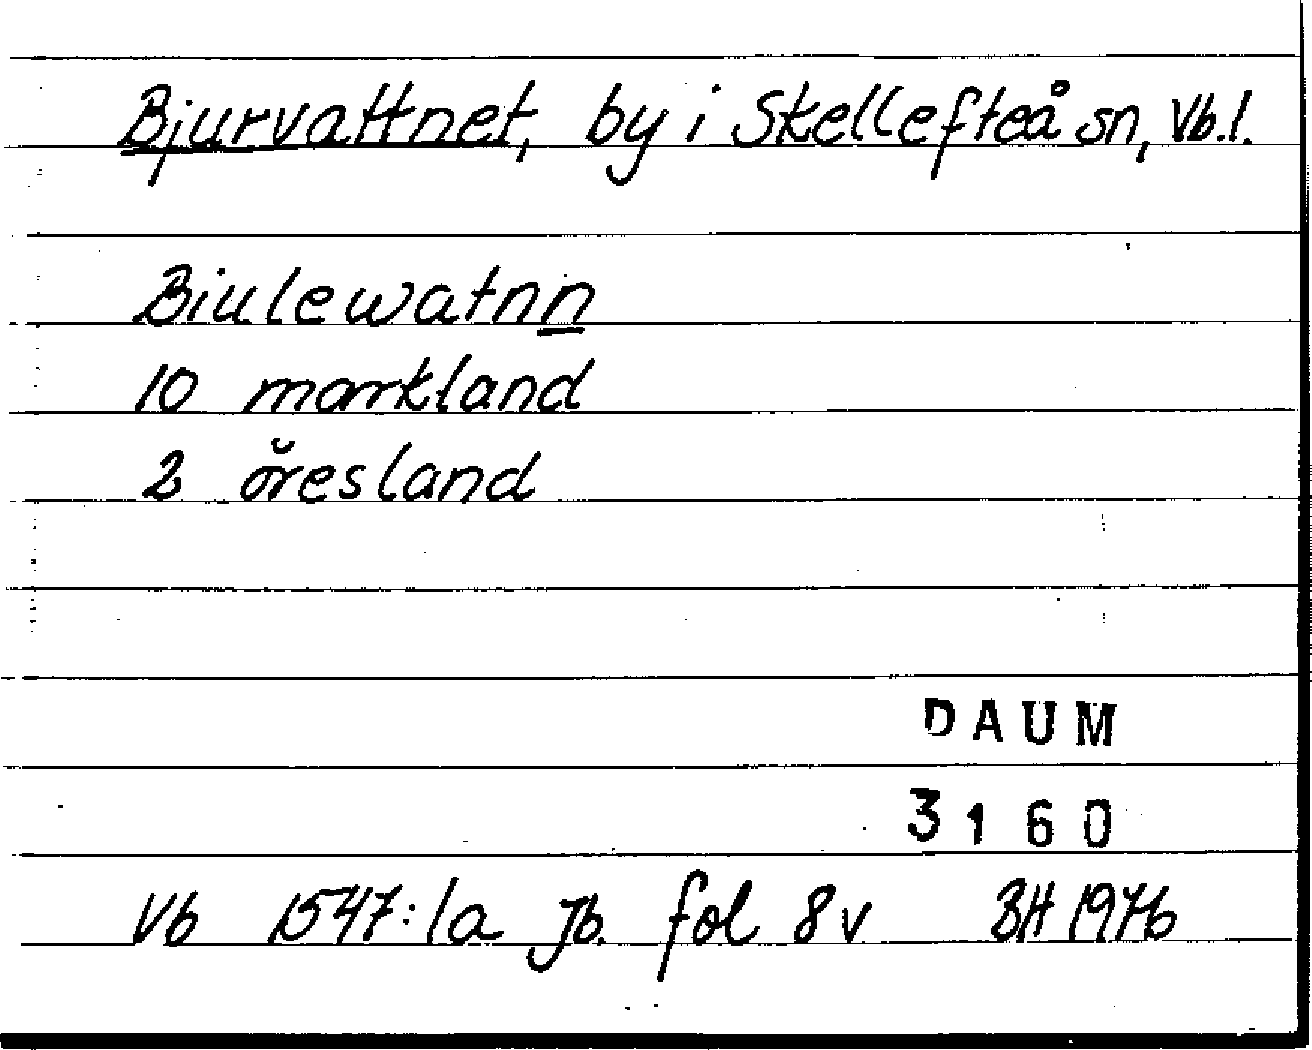 Bjurvattnet, by i Skellefteå sn, Vb.l.
Biulewatnn
10 markland
2 öresland
DAUM
3160
Vb 1547:1a Jb. fol 8v BH 1976